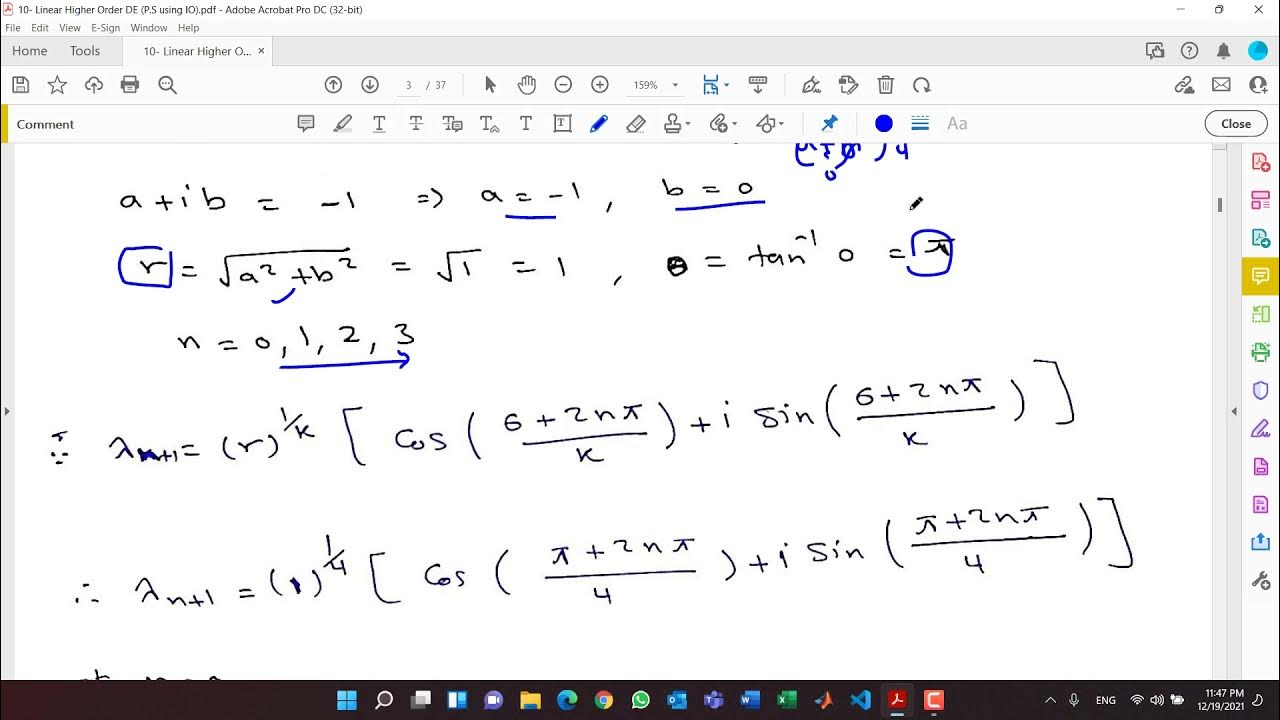 10- Linear Higher Order DE (P.S using IO).pdf - Adobe Acrobat Pro DC (32-bit)
File Edit View E-Sign Window Help
Home Tools 10- Linear Higher O... ×
3 / 37 159%
Comment Aa Close
a + i b = -1 ⇒ a = -1 , b = 0
r = √(a² + b²) = √1 = 1 , θ = tan⁻¹ 0 = π
n = 0, 1, 2, 3
∵ λn+1 = (r)^(1/k) [ cos( (6 + 2nπ)/k ) + i sin( (6 + 2nπ)/k ) ]
∴ λn+1 = (1)^(1/4) [ cos( (π + 2nπ)/4 ) + i sin( (π + 2nπ)/4 ) ]
ENG 11:47 PM
12/19/2021